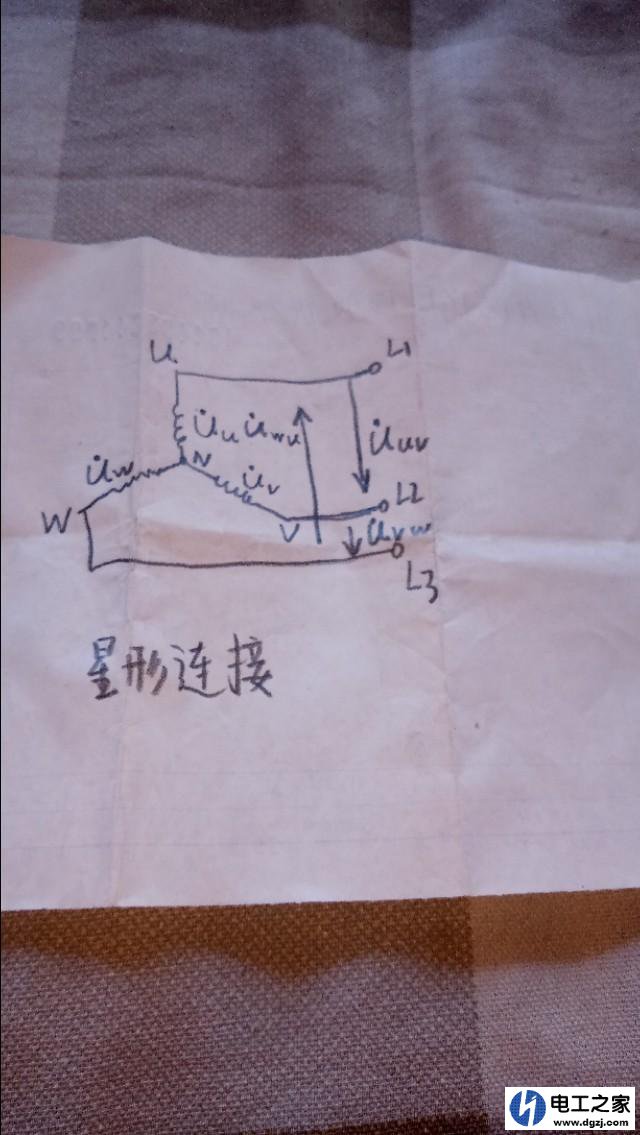 U L1
U̇u U̇wu U̇uv
U̇w N U̇v
W V L2
U̇vw
L3
星形连接
电工之家
www.dgzj.com